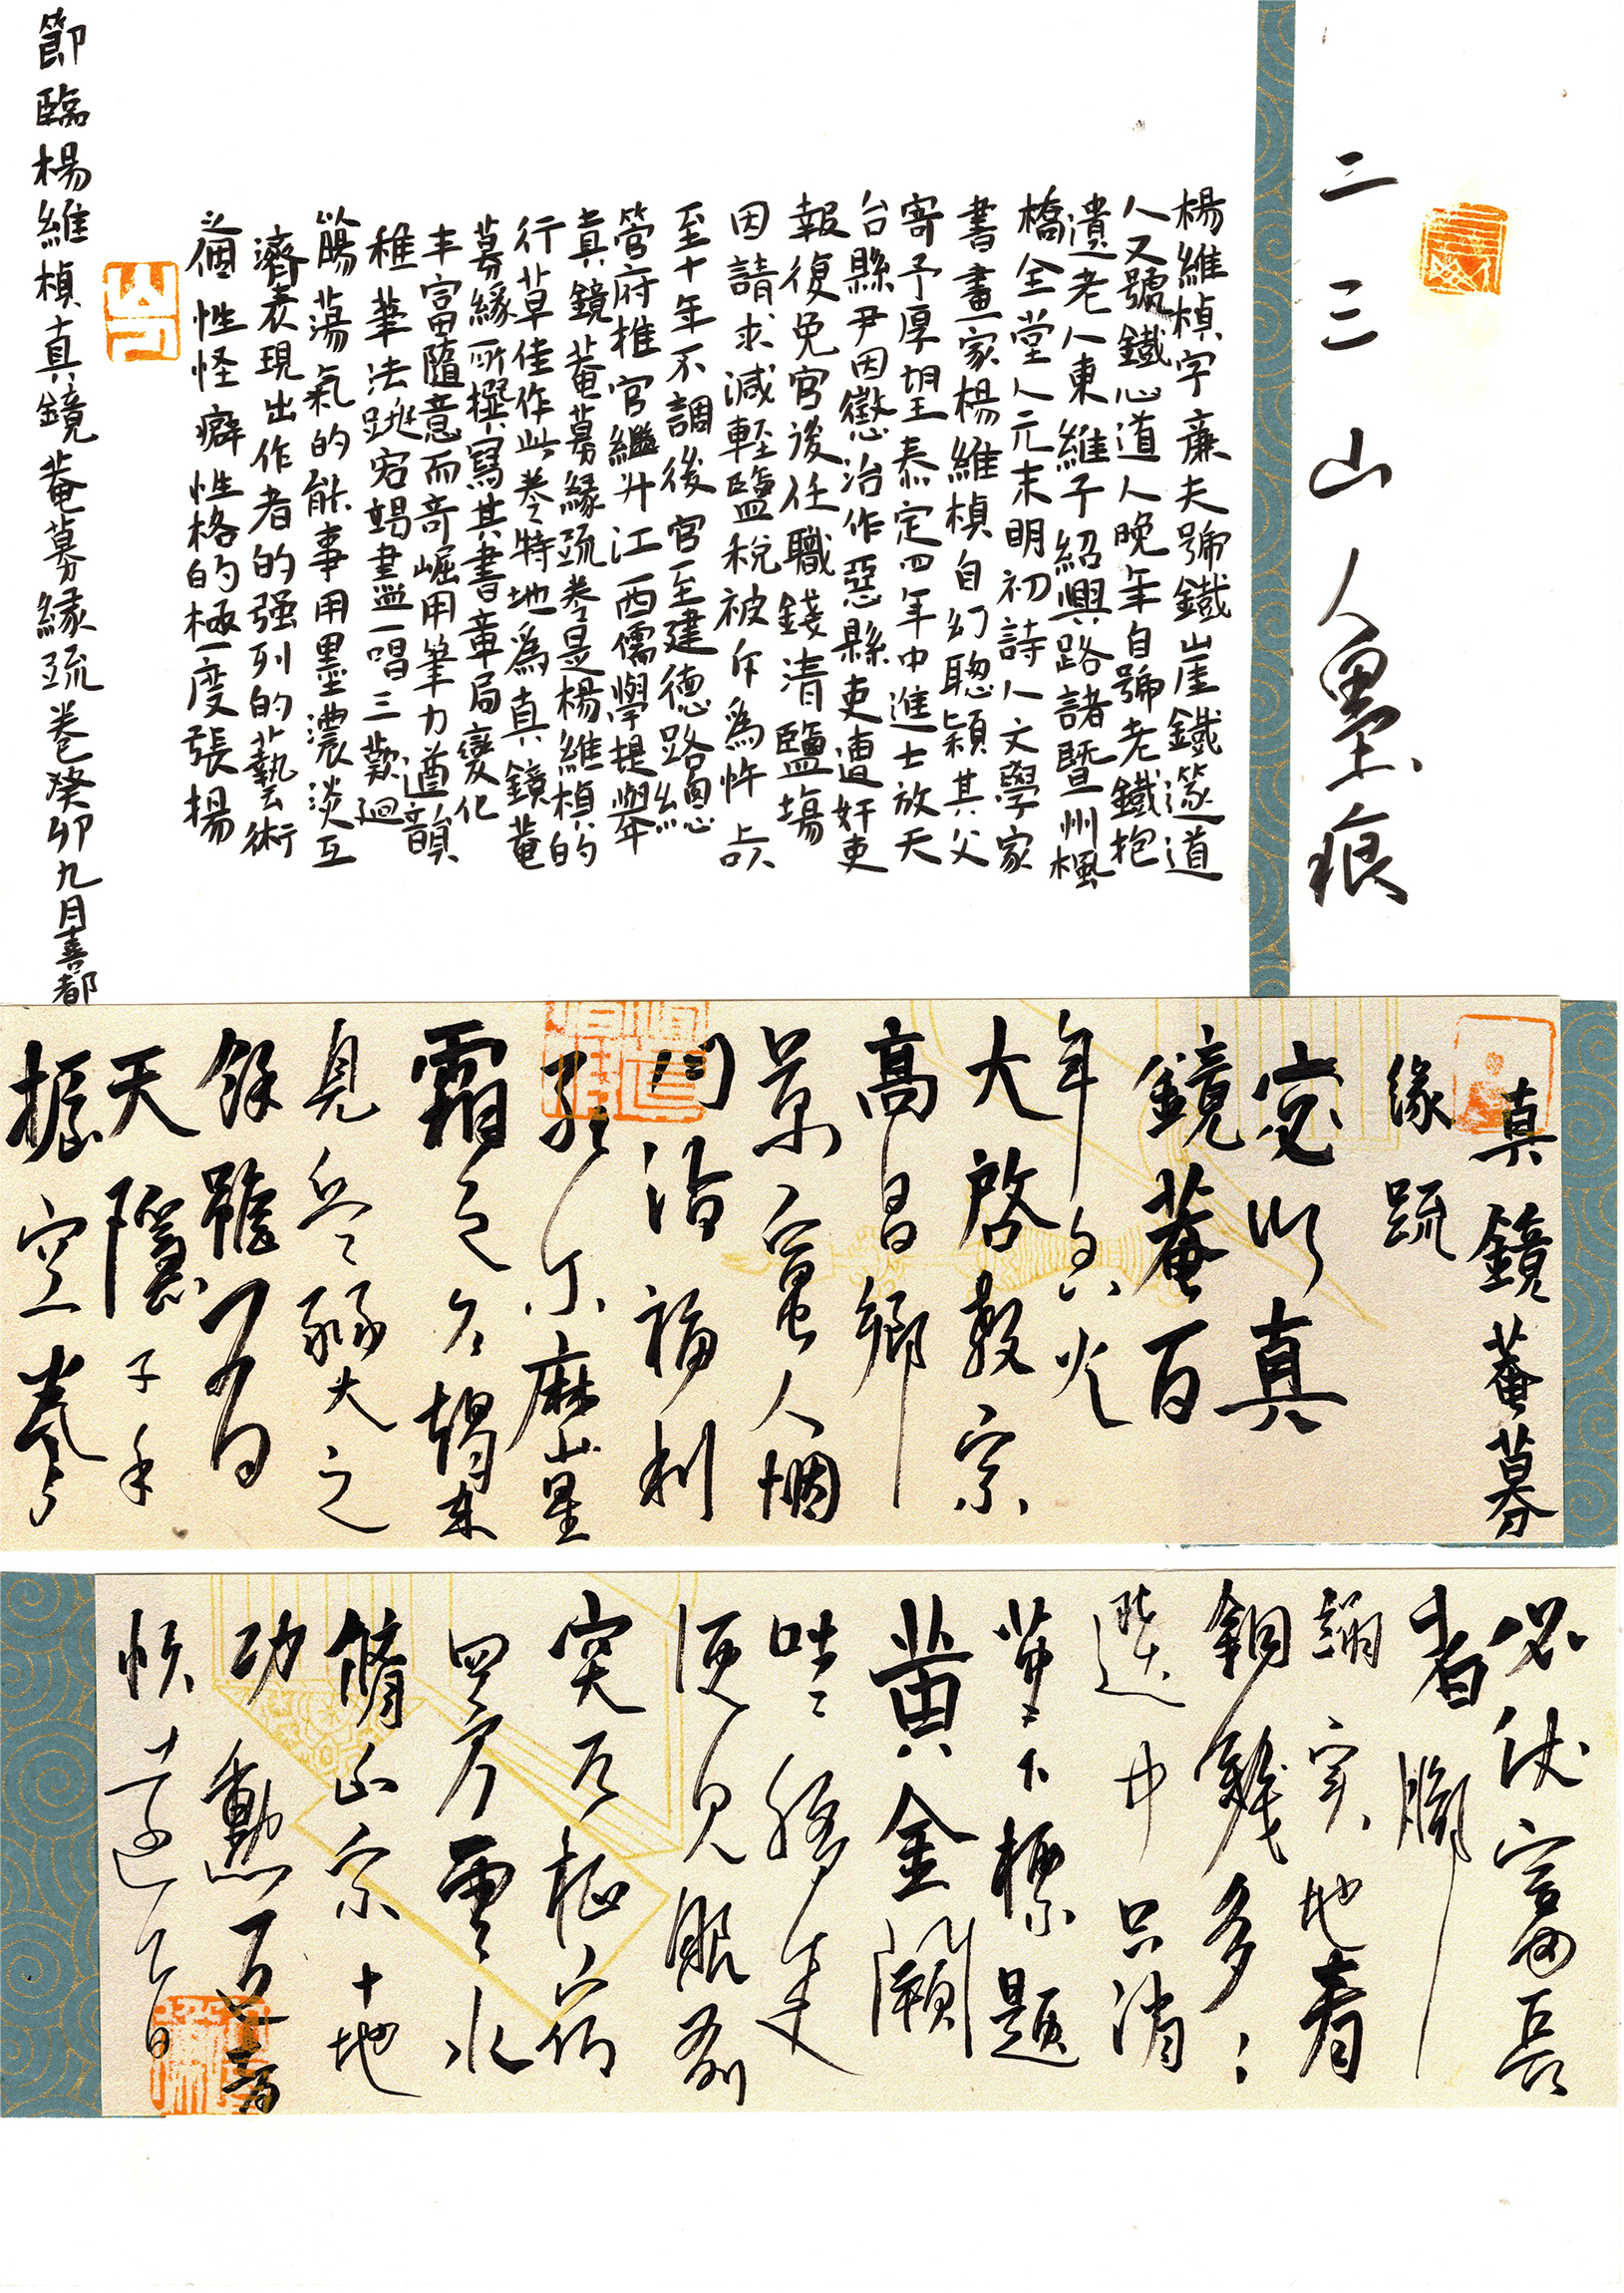 二三山人墨痕
楊維楨字廉夫號鐵崖鐵篴道
人又號鐵心道人晚年自號老鐵抱
遺老人東維子紹興路諸暨州楓
橋全堂人元末明初詩人文學家
書畫家楊維楨自幻聰穎其父
寄予厚望泰定四年中進士放天
台縣尹因懲治作惡縣吏遭奸吏
報復免官後任職錢清鹽場
因請求減輕鹽稅被斥為忤
至十年不調後官至建德路總
管府推官繼升江西儒學提舉
真鏡菴募緣疏卷是楊維楨的
行草佳作此卷特地為真鏡菴
募緣所撰寫其書章局變化
丰富隨意而奇崛用筆力遒韻
種筆法跳宕竭盡一唱三歎迴
腸蕩氣的能事用墨濃淡互
濟表現出作者的强列的藝術
個性怪癖性格的極度張揚
節臨楊維楨真鏡菴募緣疏卷癸卯九月喜都
真鏡菴募
緣疏
宓以真
鏡菴百
年香火
大啓教宗
高昌鄉
景萬人烟
同沾福利
麻山星
霜之久竭來
見兵豕之
餘雖有
天隱子手
振空拳
必伏富長
者脚
踏實地看
銅錢多
選中只消
筆下標題
黃金闕
哇哇
便見眼前
突兀
四方雲水
脩正宗十地
功勳百